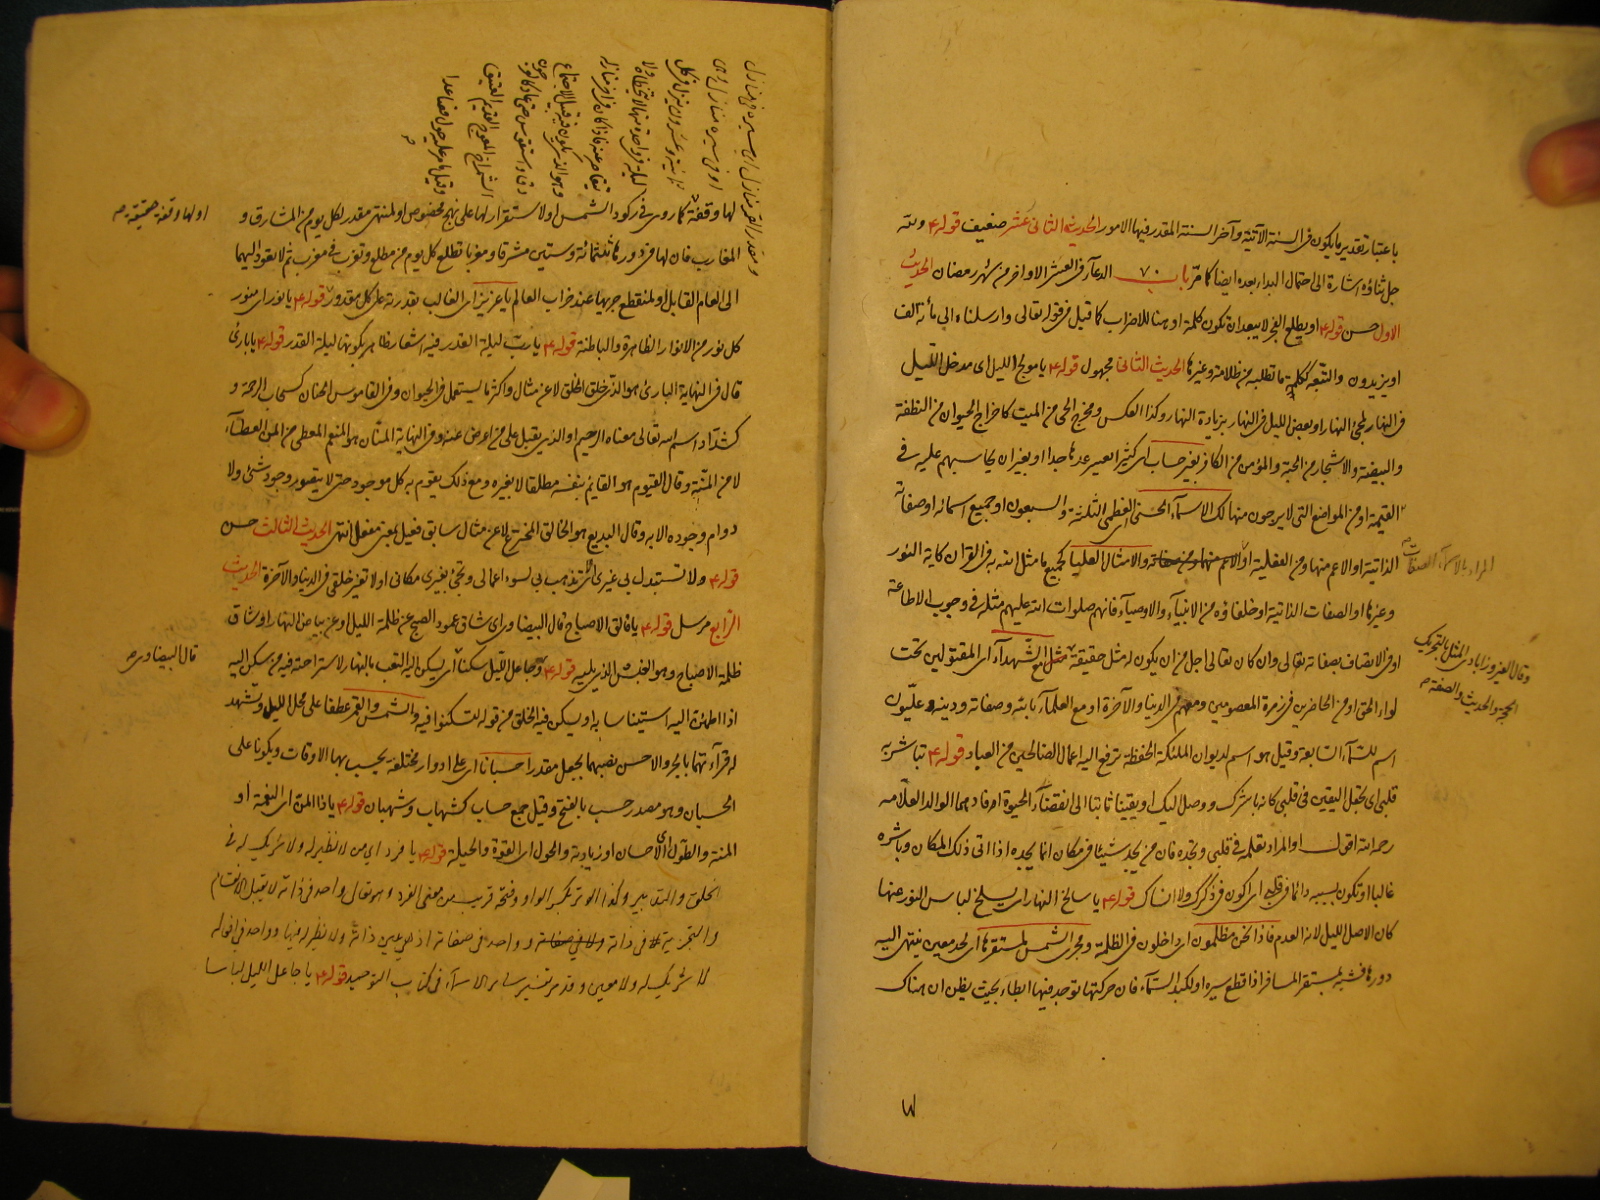 باعتبار تقدير ما يكون في السنة الآتية وآخر السنة المقدر فيها الامور الحديث الثاني عشر ضعيف قوله ع ولله
جل ثناؤه اشارة الى احتمال البداء بعده ايضا كما مرّ باب ٧٠ الدعاء في العشر الاواخر من شهر رمضان الحديث
الاول حسن قوله ع او يطلع الفجر لا يبعد ان تكون كلمة او هنا للاضراب كما قيل في قوله تعالى وارسلناه الى مائة الف
او يزيدون والتبعة ككلمة ما تطلبه من ظلامة وغيرها الحديث الثاني مجهول قوله ع يا مولج الليل اى مدخل الليل
في النهار بمجئ النهار او بعض الليل في النهار بزيادة النهار وكذا العكس ومخرج الحي من الميت كاخراج الحيوان من النطفة
والبيضة والاشجار من الحبة والمؤمن من الكافر بغير حساب اى كثيرا يعسر عدها جدا او بغير ان يحاسبهم عليه في
القيمة او من المواضع التي لا يرجون منها لك الاسماء الحسنى اى العظمى الثلثة والسبعون او جميع اسمائه او صفاته
الذاتية او الاعم منها ومن الفعلية او الاعم منها ومن صفاته والامثال العليا كجميع ما مثل الله به في القران كاية النور
وغيرها او الصفات الذاتية او خلفاؤه من الانبياء والاوصياء فانهم صلوات الله عليهم مثله في وجوب الاطاعة
او في الاتصاف بصفاته تعالى وان كان تعالى اجل من ان يكون له مثل حقيقة مع الشهداء اى المقتولين تحت
لواء الحق او من الحاضرين في زمرة المعصومين ومعهم في الدنيا والآخرة او مع العلماء بالله وصفاته ودينه وعليّون
اسم للسماء السابعة وقيل هو اسم لديوان الملئكة الحفظة ترفع اليه اعمال الصالحين من العباد قوله ع تباشر به
قلبى اى تجعل اليقين في قلبي كانه باشرك ووصل اليك او يقينا ثابتا الى انقضاء الحيوة افادهما الوالد العلّامه
رحمه الله اقول او المراد تعلمه في قلبي وتجده فان من يجد شيئا في مكان انما يجده اذا اتى ذلك المكان وباشره
غالبا او تكون بسببه دائما في قلبي اى اكون في ذكرك ولا انساك قوله ع يا سالخ النهار اى يسلخ لباس النور عنها
كان الاصل الليل لانه العدم فاذا نحن مظلمون اى داخلون في الظلمة ومجرى الشمس لمستقرها اى لحد معين ينتهى اليه
دورها فشبه بمستقر المسافر اذا قطع سيره او لكبد السماء فان حركتها توجد فيها ابطاء بحيث يظن ان هناك
المراد بالاسماء الصفات
وقال الفيروزابادى المثل بالتحريك
الحجة والحديث والصفة
لها وقفة كما روى في ركود الشمس او لا ستقرار لها على نهج مخصوص او لمنتهى مقدر لكل يوم من المشارق و
المغارب فان لها في دورها ثلثمائة وستين مشرقا ومغربا تطلع كل يوم من مطلع وتغرب في مغرب ثم لا تعود اليهما
الى العام القابل او لمنقطع جريها عند خراب العالم يا عزيز اى الغالب بقدرته على كل مقدور قوله ع يا نور اى منور
كل نور من الانوار الظاهرة والباطنة قوله ع يا رب ليلة القدر فيه اشعار ظاهر بكونها ليلة القدر قوله ع يا بارئ
قال في النهاية البارئ هو الذى خلق الخلق لا عن مثال واكثر ما يستعمل في الحيوان وفي القاموس الحنان كسحاب الرحمة و
كشداد اسم الله تعالى معناه الرحيم او الذى يقبل على من اعرض عنه وفي النهاية المنّان هو المنعم المعطى من المن العطاء
لا من المنّة وقال القيوم هو القايم بنفسه مطلقا لا بغيره ومع ذلك يقوم به كل موجود حتى لا يتصور وجود شئ ولا
دوام وجوده الا به وقال البديع هو الخالق المخترع لا عن مثال سابق فعيل بمعنى مفعل انتهى الحديث الثالث حسن
قوله ع ولا تستبدل بي غيري اى تذهب بي لسوء اعمالي وتجئ بغيري مكاني او لا تغير خلقي في الدنيا والآخرة الحديث
الرابع مرسل قوله ع يا فالق الاصباح قال البيضاوى شاق عمود الصبح عن ظلمة الليل وعن بياض النهار او شاق
ظلمة الاصباح وهو الغبش الذى يليه قوله ع وجاعل الليل سكنا اى يسكن اليه التعب بالنهار لاستراحته فيه من سكن اليه
اذا اطمئن اليه استيناسا به او يسكن فيه الخلق من قوله لتسكنوا فيه والشمس والقمر عطفا على محل الليل ويشهد
له قرآءتهما بالجر والاحسن نصبهما بجعل مقدرا حسبانا اى على ادوار مختلفة يحسب بها الاوقات ويكونا على
الحسبان وهو مصدر حسب بالفتح وقيل جمع حساب كشهاب وشهبان قوله ع يا ذا المن اى النعمة او
المنة والطول اى الاحسان او زيادته والحول اى القوة والحيلة قوله ع يا فرد اى من لا نظير له ولا شريك له في
الخلق والتدبير وكذا الوتر بكسر الواو وفتحه قريب من معنى الفرد وهو تعالى واحد في ذاته لا يقبل الانقسام
والتجزية في ذاته ولا في صفاته وواحد في صفاته اذ هي عين ذاته ولا نظير له فيها وواحد في افعاله
لا شريك له ولا معين وقد مر تفسير ساير الاسماء في كتاب التوحيد قوله ع يا جاعل الليل لباسا
ومقدر القمر منازل اى مسيره في منازل
او في سيره منازل وهى
ثمانية وعشرون ينزل كل
ليلة في واحدة منها لا يتخطاه ولا
يتقاصر عنه فاذا كان في آخر منازله
وهو الذى يكون فيه قبيل الاجتماع
دق واستقوس حتى عاد كالعرجون
الشمراخ المعوج القديم العتيق
وقيل ما مر عليه حول فصاعدا
او لها وقفة حقيقة
قال البيضاوى